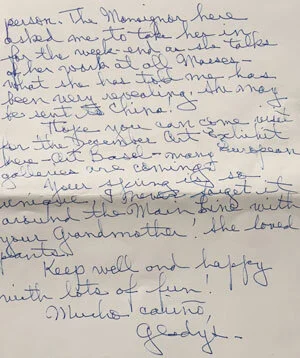 person. The Monsignor here
asked me to take her in
for the week-end as she talks
of her work at all Masses –
what she has told me has
been very revealing, she may
be sent to China!
Hope you can come visit
for the December Art Exhibit
here – Art Basel – many European
galleries are coming.
Your Spring is so
unique, I never forget it
around the Main Line with
your Grandmother, she loved
plants.
Keep well and happy
with lots of fun!
Mucho cariño,
Gladys –